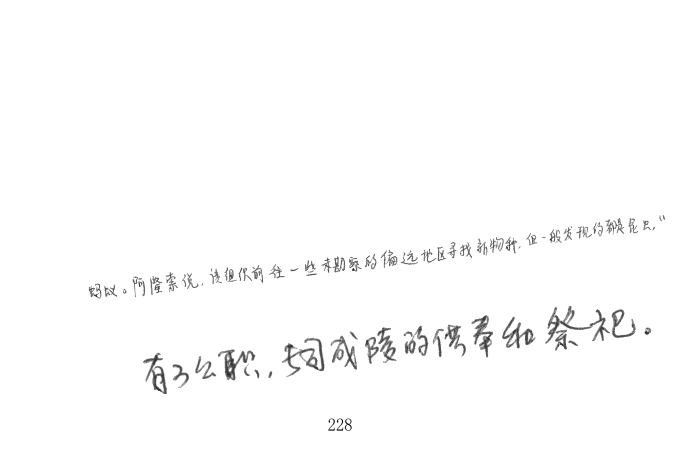 蚂蚁。阿隆索说，该组织前往一些未勘察的偏远地区寻找新物种，但一般发现的都是昆虫。"
有了公职，如同成陵的供奉和祭祀。
228